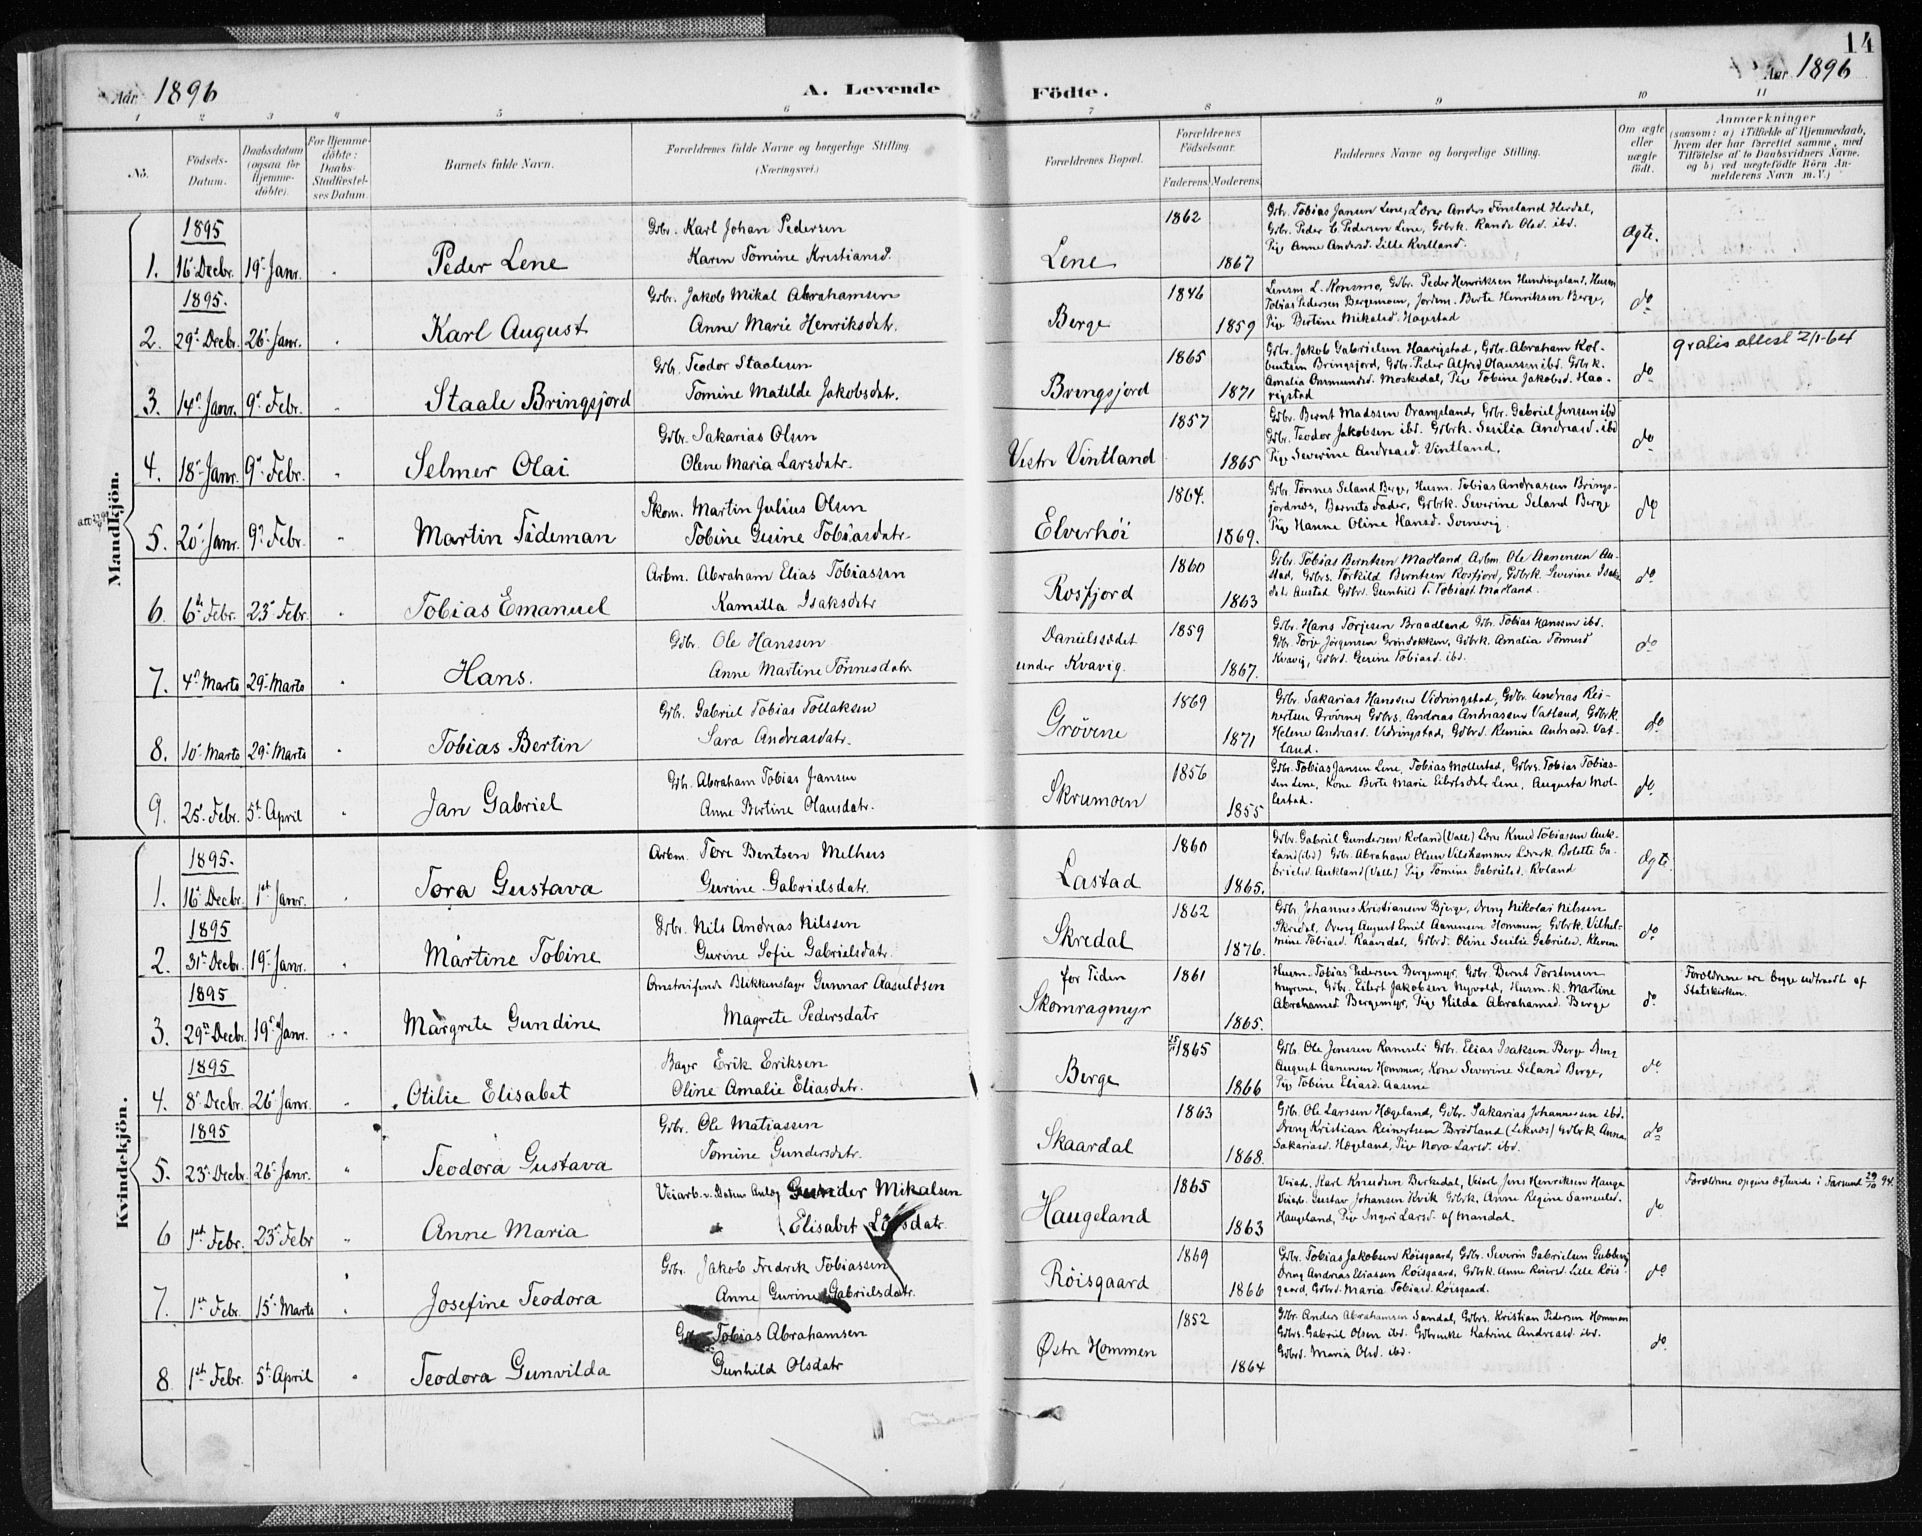 14
Aar 1896 A. Levende Födte. Aar 1896
1 2 3 4 5 6 7 8 9 10 11
No. Födsels-Datum. Daabsdatum (ogsaa for Hjemme-döbte). For Hjemme-döbte: Daabs-Stadfæstel-ses Datum. Barnets fulde Navn. Forældrenes fulde Navne og borgerlige Stilling. (Næringsvei.) Forældrenes Bopæl. Forældrenes Födselsaar. Faderens. Moderens. Faddernes Navne og borgerlige Stilling. Om ægte eller uægte födt. Anmærkninger (saasom: a) i Tilfælde af Hjemmedaab, hvem der har forrettet samme, med Tilföielse af to Daabsvidners Navne. og b) ved uægtefödte Börn An-melderens Navn m.V.)
Mandkjön.
1895
1. 16 Decbr. 19 Janr. Peder Lene
Gbr. Karl Johan Pedersen
Karen Tomine Kristiansd.
Lene 1862 1867
Gbr. Tobias Jansen Lene, Lærer Anders Finsland Herdal,
Gbr. Peder C Pedersen Lene, Gbrk. Randi Olsd. ibd.
Pige Anne Andersd. Lille Kvelland.
Ægte.
1895.
2. 29 Decbr. 26 Janr. Karl August
Gbr. Jakob Mikal Abrahamsen
Anne Marie Henriksdatr.
Berge 1846 1859
Lensm L. Konsmo, Gbr. Peder Henriksen Hundingsland, Husm
Tobias Pedersen Bergemoen, Jordm. Berte Henriksen Berge,
Pige Bertine Mikalsd. Hagestad
do
3. 14 Janr. 9 Febr. Staale Bringsjord
Gbr. Teodor Staalesen
Tomine Matilde Jakobsdatr.
Bringsjord 1865 1871
Gbr. Jakob Gabrielsen Haarigstad, Gbr. Abraham Kol-
bentsen Bringsjord, Gbr. Peder Alfred Olaussen ibd. Gbrk.
Amalia Ommundsd. Moskedal, Pige Tobine Jakobsd. Haa-
rigstad
do
gratis attest 2/1-64
4. 18 Janr. 9 Febr. Selmer Olai
Gbr. Sakarias Olsen
Olene Maria Larsdatr.
Vestre Vintland 1857 1865
Gbr. Bernt Madssen Drangsland, Gbr. Gabriel Jenssen ibd
Gbr. Teodor Jakobsen ibd. Gbrk. Serilia Andreasd. ibd
Pige Severine Andreasd. Vintland.
do
5. 20 Janr. 9 Febr. Martin Tideman
Skom. Martin Julius Olsen
Tobine Gurine Tobiasdatr.
Elverhöi 1864. 1869.
Gbr. Tønnes Seland Berge, Husm. Tobias Andreasen Brings-
jordnes, Barnets Fader, Gbrk. Severine Seland Berge
Pige Hanne Oline Hansd. Svenevig.
do
6. 6 Febr. 23 Febr. Tobias Emanuel
Arbm. Abraham Elias Tobiassen
Kamilla Isaksdatr
Rosfjord 1860 1863
Gbr. Tobias Berntsen Madland, Arbm. Ole Aanensen Au-
stad, Gbrs. Torkild Berntsen Rosfjord, Gbrk. Severine Isaks
datr. Austad Gbrd. Gunhild T. Tobiasd. Madland.
do
7. 4 Marts 29 Marts Hans.
Gbr. Ole Hanssen
Anne Martine Tønnesdatr.
Danielssædet
under Kvavig. 1859 1867.
Gbr. Hans Torjesen Braadland Gbr. Tobias Hanssen ibd.
Gbr. Torje Jørgensen Grindokken, Gbrk. Amalia Tønnesd
Kvavig, Gbrd. Gurine Tobiasd. ibd.
do
8. 10 Marts 29 Marts Tobias Bertin
Gbr. Gabriel Tobias Tollaksen
Sara Andreasdatr.
Grövene 1869 1871
Gbr. Sakarias Hanssen Vidringstad, Gbr. Andreas Rei-
nertsen Grövene, Gbrs. Andreas Andreassen Vatland, Gbrk.
Helene Andreasd. Vidringstad, Gbrd. Remine Andreasd. Vat-
land.
do
9. 25 Febr. 5 April Jan Gabriel
Gbr. Abraham Tobias Jansen
Anne Bertine Olausdatr.
Skrumoen 1856 1855
Gbr. Tobias Jansen Lene, Tobias Mollestad, Gbrs. Tobias Tobias-
sen Lene, Kone Berte Marie Eibrtsdatr Lene, Augusta Mol-
lestad.
do.
Kvindekjön.
1895.
1. 16 Decbr. 1st Janr. Tora Gustava
Arbm. Tore Bentsen Melhus
Gurine Gabrielsdatr.
Lastad 1860 1865.
Gbr. Gabriel Gundersen Roland (Valle) Lærer Knud Tobiassen Auk-
land (ibd) Gbr. Abraham Olsen Vilshammer Lærerk. Bolette Ga-
brielsd. Aukland (Valle) Pige Tomine Gabrielsd. Roland
Ægte
1895
2. 31 Decbr. 19 Janr. Martine Tobine
Gbr. Nils Andreas Nilssen
Gurine Sofie Gabrielsdatr.
Skredal 1862 1876.
Gbr. Johannes Kristiansen Bjerge, Dreng Nikolai Nilssen
Skredal, Dreng August Emil Aanensen Hommen, Gbrk. Vilhel-
mine Tobiasd. Raarsdal, Gbrd. Oline Serilie Gabrielsd. Klevene
do
1895
3. 29 Decbr. 19 Janr. Margrete Gundine
Omstreifende Blikkenslager Gunnar Aasuldsen
Magrete Pedersdatr
for Tiden
Skomragmyr 1861 1865.
Husm. Tobias Pedersen Bergemyr, Gbr. Bernt Torstensen
Myrene, Gbr. Eilert Jakobsen Nyvold, Husm.k. Martine
Abrahamsd. Bergemyr, Pige Hilda Abrahamsd. Berge
do
Forældrene ere begge udtraadte af
Statskirken.
1895
4. 8 Decbr. 26 Janr. Otilie Elisabet
Bager Erik Eriksen
Oline Amalie Eliasdatr.
Berge 1865 1866
Gbr. Ole Jenssen Ramsli Gbr. Elias Isaksen Berge Dreng
August Aanensen Hommen, Kone Severine Seland Berge,
Pige Tobine Eliasd. Aasene
do
1895
5. 23 Decbr. 26 Janr. Teodora Gustava
Gbr. Ole Matiassen
Tomine Gundersdatr.
Skaardal 1863 1868.
Gbr. Ole Larssen Hægeland, Gbr. Sakarias Johannessen ibd.
Dreng Kristian Reinertsen Brødland (Leknes) Gbrk Anna
Sakariasd. Högeland, Pige Nora Larsd. ibd.
do
6 1st Febr. 23 Febr Anne Maria
Veiarb. Gunder Mikalsen
Elisabet Larsdatr.
Haugeland 1865 1863
Veiarb. Karl Knudsen Birkedal, Veiarb Jens Henriksen Hauge
Veiarb. Gustav Johansen Kvik Gbrk. Anne Regine Samuelsd.
Haugeland, Pige Ingeri Larsd. af Mandal.
do
Forældrene opgives Ægteviede i Farsund 29/10 94.
7. 1st Febr. 15 Marts Josefine Teodora
Gbr. Jakob Fredrik Tobiassen
Anne Gurine Gabrielsdatr.
Röisgaard 1869 1866
Gbr. Tobias Jakobsen Röisgaard, Gbr. Severin Gabrielsen
Dreng Andreas Eliassen Röisgaard, Gbrk. Anne Reiersd. Lille Röis-
gaard, Gbrd. Maria Tobiasd. Röisgaard.
do
8 1st Febr. 5 April Teodora Gunvilda
Gbr. Tobias Abrahamsen
Gunhild Olsdatr
Østre Hommen 1852 1864
Gbr. Anders Abrahamsen Sandal, Gbrs. Kristian Pedersen Hommen
Gbrs. Gabriel Olsen ibd. Gbrenke Katrine Andreasd. ibd.
Gbrd. Maria Olsd. ibd.
do.